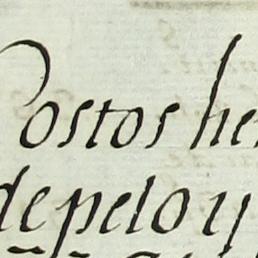 Postos he
de pelo y